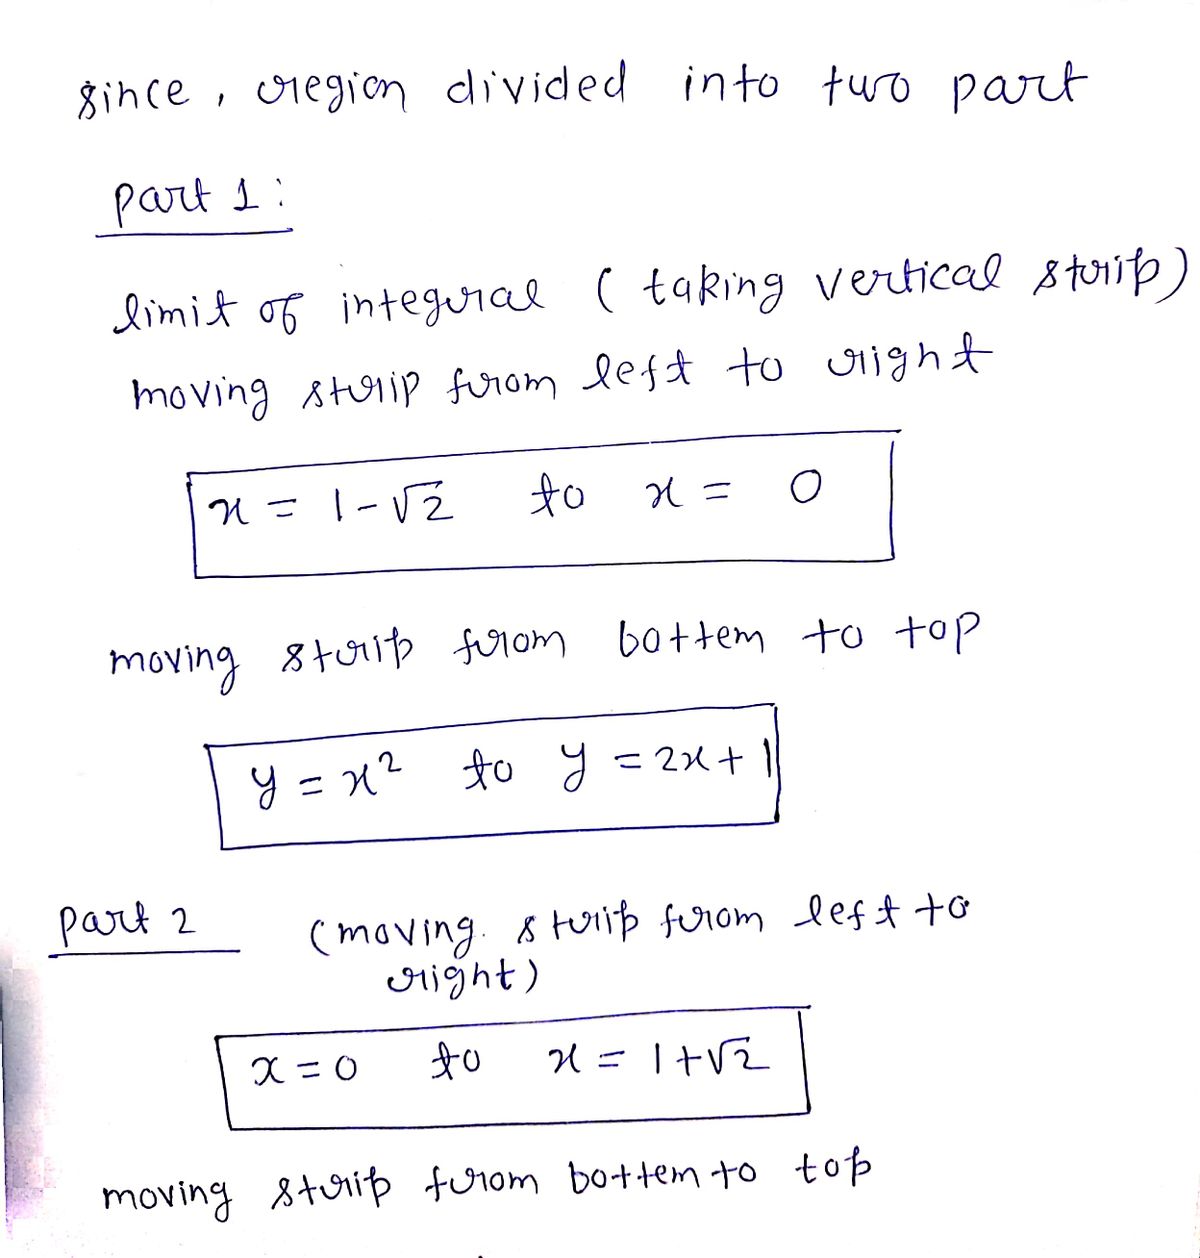 since, region divided into two part
part 1:
limit of integral ( taking vertical strip)
moving strip from left to right
x = 1-√2 to x = 0
moving strip from bottem to top
y = x² to y = 2x+1
part 2 (moving strip from left to
right)
x=0 to x = 1+√2
moving strip from bottem to top